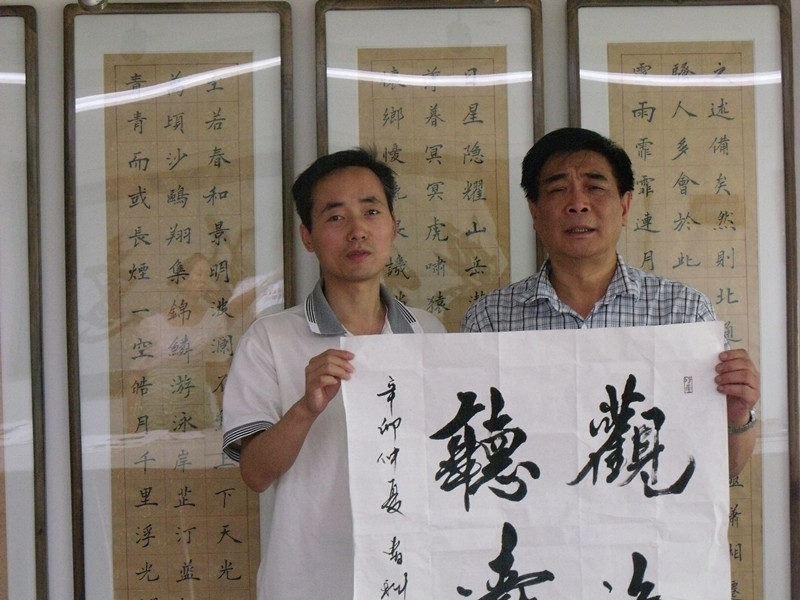 之述備矣然則北通
騷人多會於此
霪雨霏霏連月
日星隐耀山岳
薄暮冥冥虎嘯猿
懷鄉憂讒畏譏
至若春和景明波瀾不上下天光
萬頃沙鷗翔集錦鱗游泳岸芷汀蘭
青青而或長煙一空皓月千里浮光
觀
聽
辛卯仲夏 書